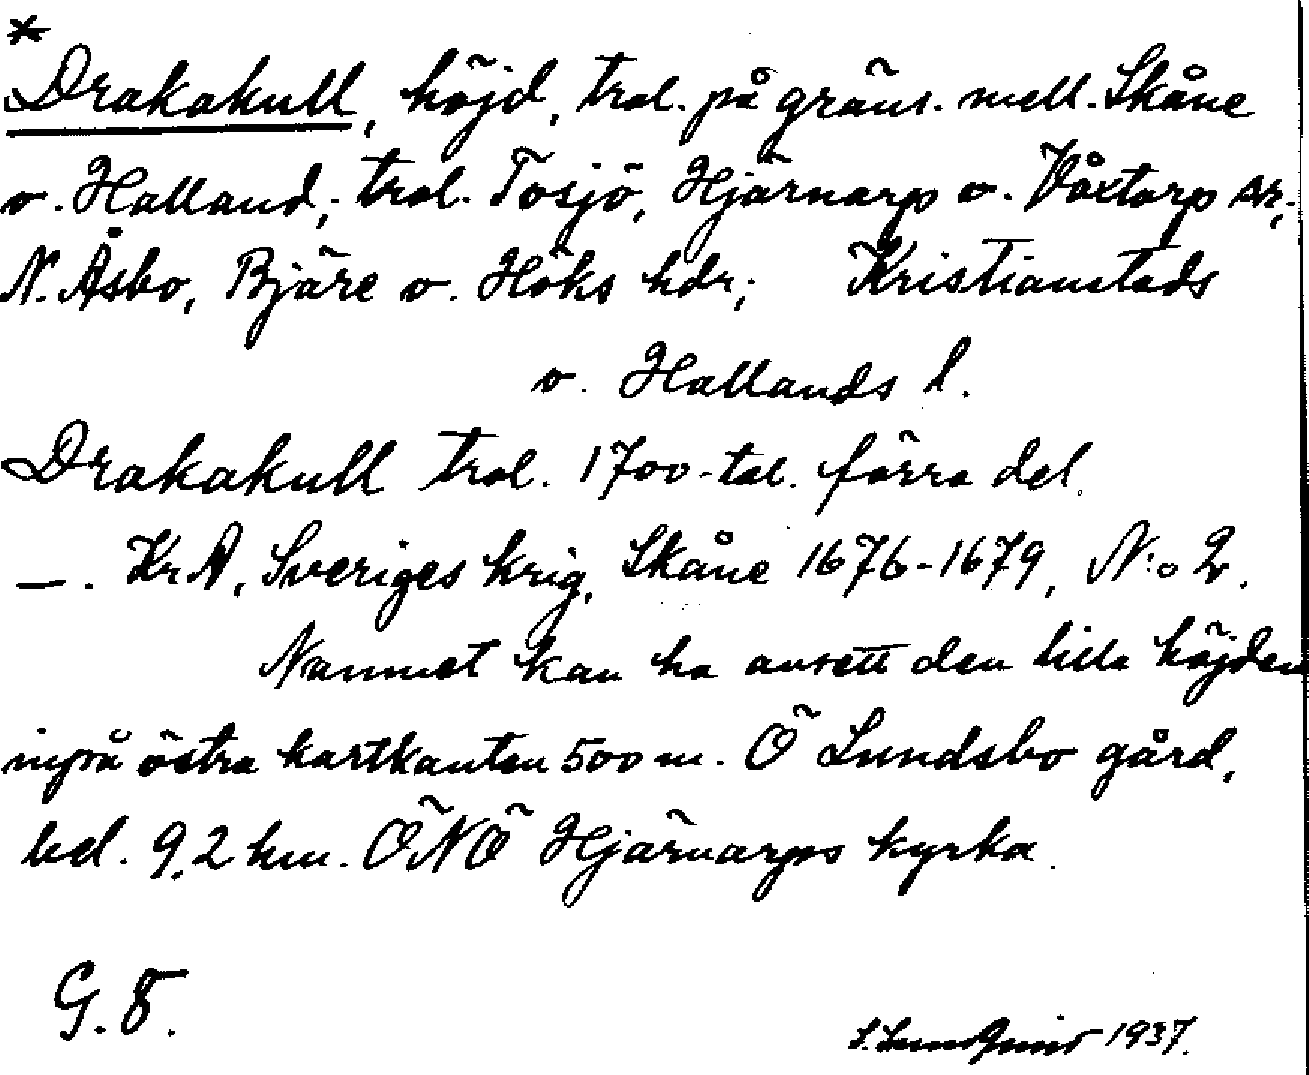 *
Drakakull, höjd, trol. på gräns. mell. Skåne
o. Halland; trol. Tosjö, Hjärnarp o. Våxtorp snr;
N. Åsbo, Bjäre o. Höks hdr; Kristianstads
o. Hallands l.
Drakakull trol. 1700-tal. förra del.
—. KrA, Sveriges krig, Skåne 1676-1679, N:o 2.
Namnet kan ha avsett den lilla höjden
inpå östra kartkanten 500 m. Ö Lundsbo gård,
bel. 9,2 km. ÖNÖ Hjärnarps kyrka.
G. 8.
S. Lundquist 1937.